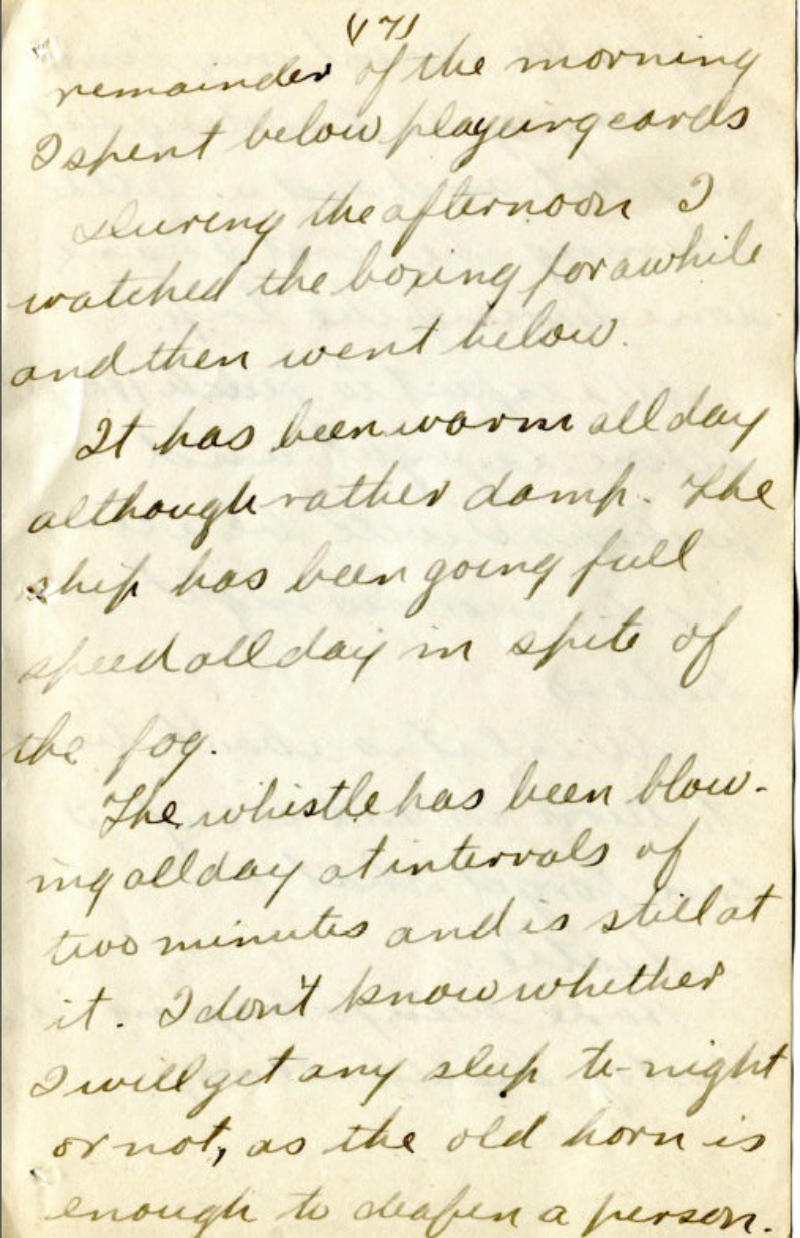 (17)
remainder of the morning
I spent below playing cards
During the afternoon I
watched the boxing for awhile
and then went below.
It has been warm all day
although rather damp. The
ship has been going full
speed all day in spite of
the fog.
The whistle has been blow-
ing all day at intervals of
two minutes and is still at
it. I don't know whether
I will get any sleep to-night
or not, as the old horn is
enough to deafen a person.